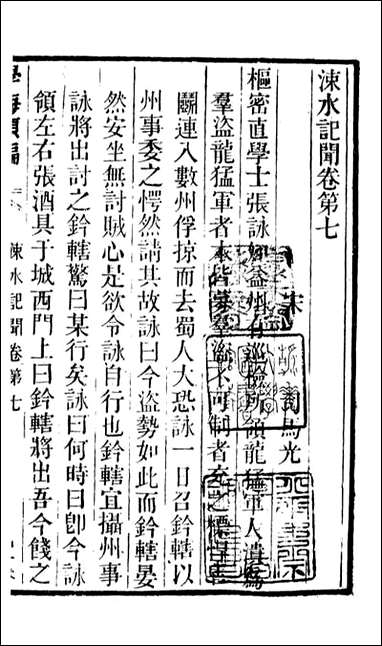 涑水記聞卷第七
宋 司馬光
樞密直學士張詠知益州有巡檢所領龍猛軍人潰爲
羣盜龍猛軍者本皆募羣盜不可制者充之慓悍
鬭連入數州俘掠而去蜀人大恐詠一日召鈐轄以
州事委之愕然請其故詠曰今盜勢如此而鈐轄晏
然安坐無討賊心是欲令詠自行也鈐轄宜攝州事
詠將出討之鈐轄驚曰某行矣詠曰何時曰卽今詠
領左右張酒具于城西門上曰鈐轄將出吾今餞之
學海類編
涑水記聞卷第七